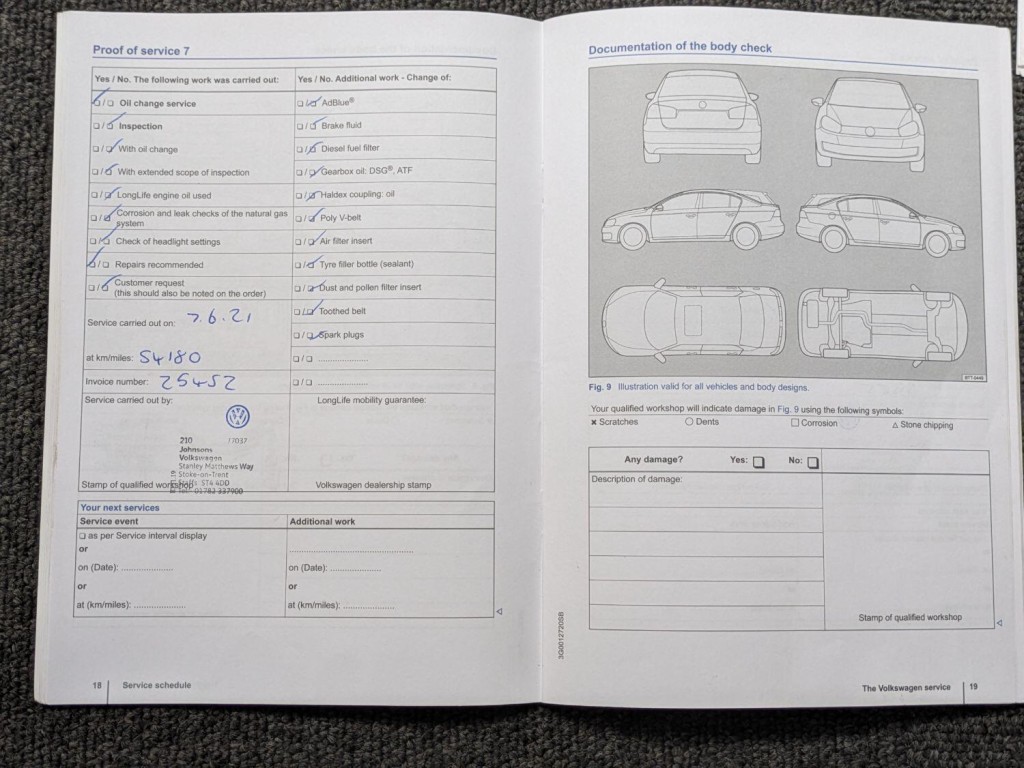 Proof of service 7
Yes / No. The following work was carried out:
Oil change service
Inspection
With oil change
With extended scope of inspection
LongLife engine oil used
Corrosion and leak checks of the natural gas
system
Check of headlight settings
Repairs recommended
Customer request
(this should also be noted on the order)
Service carried out on: 7.6.21
at km/miles: 54180
Invoice number: 25452
Service carried out by:
210 17037
Johnsons
Volkswagen
Stanley Matthews Way
Stoke-on-Trent
Staffs ST4 4DD
Tel: 01782 337900
Stamp of qualified workshop
Yes / No. Additional work - Change of:
AdBlue®
Brake fluid
Diesel fuel filter
Gearbox oil: DSG®, ATF
Haldex coupling: oil
Poly V-belt
Air filter insert
Tyre filler bottle (sealant)
Dust and pollen filter insert
Toothed belt
Spark plugs
LongLife mobility guarantee:
Volkswagen dealership stamp
Your next services
Service event
as per Service interval display
or
on (Date): ....................
or
at (km/miles): ....................
Additional work
on (Date): ....................
or
at (km/miles): ....................
18 Service schedule
Documentation of the body check
Fig. 9 Illustration valid for all vehicles and body designs.
Your qualified workshop will indicate damage in Fig. 9 using the following symbols:
× Scratches
○ Dents
□ Corrosion
△ Stone chipping
Any damage? Yes: No:
Description of damage:
Stamp of qualified workshop
3G0012720SB
The Volkswagen service 19